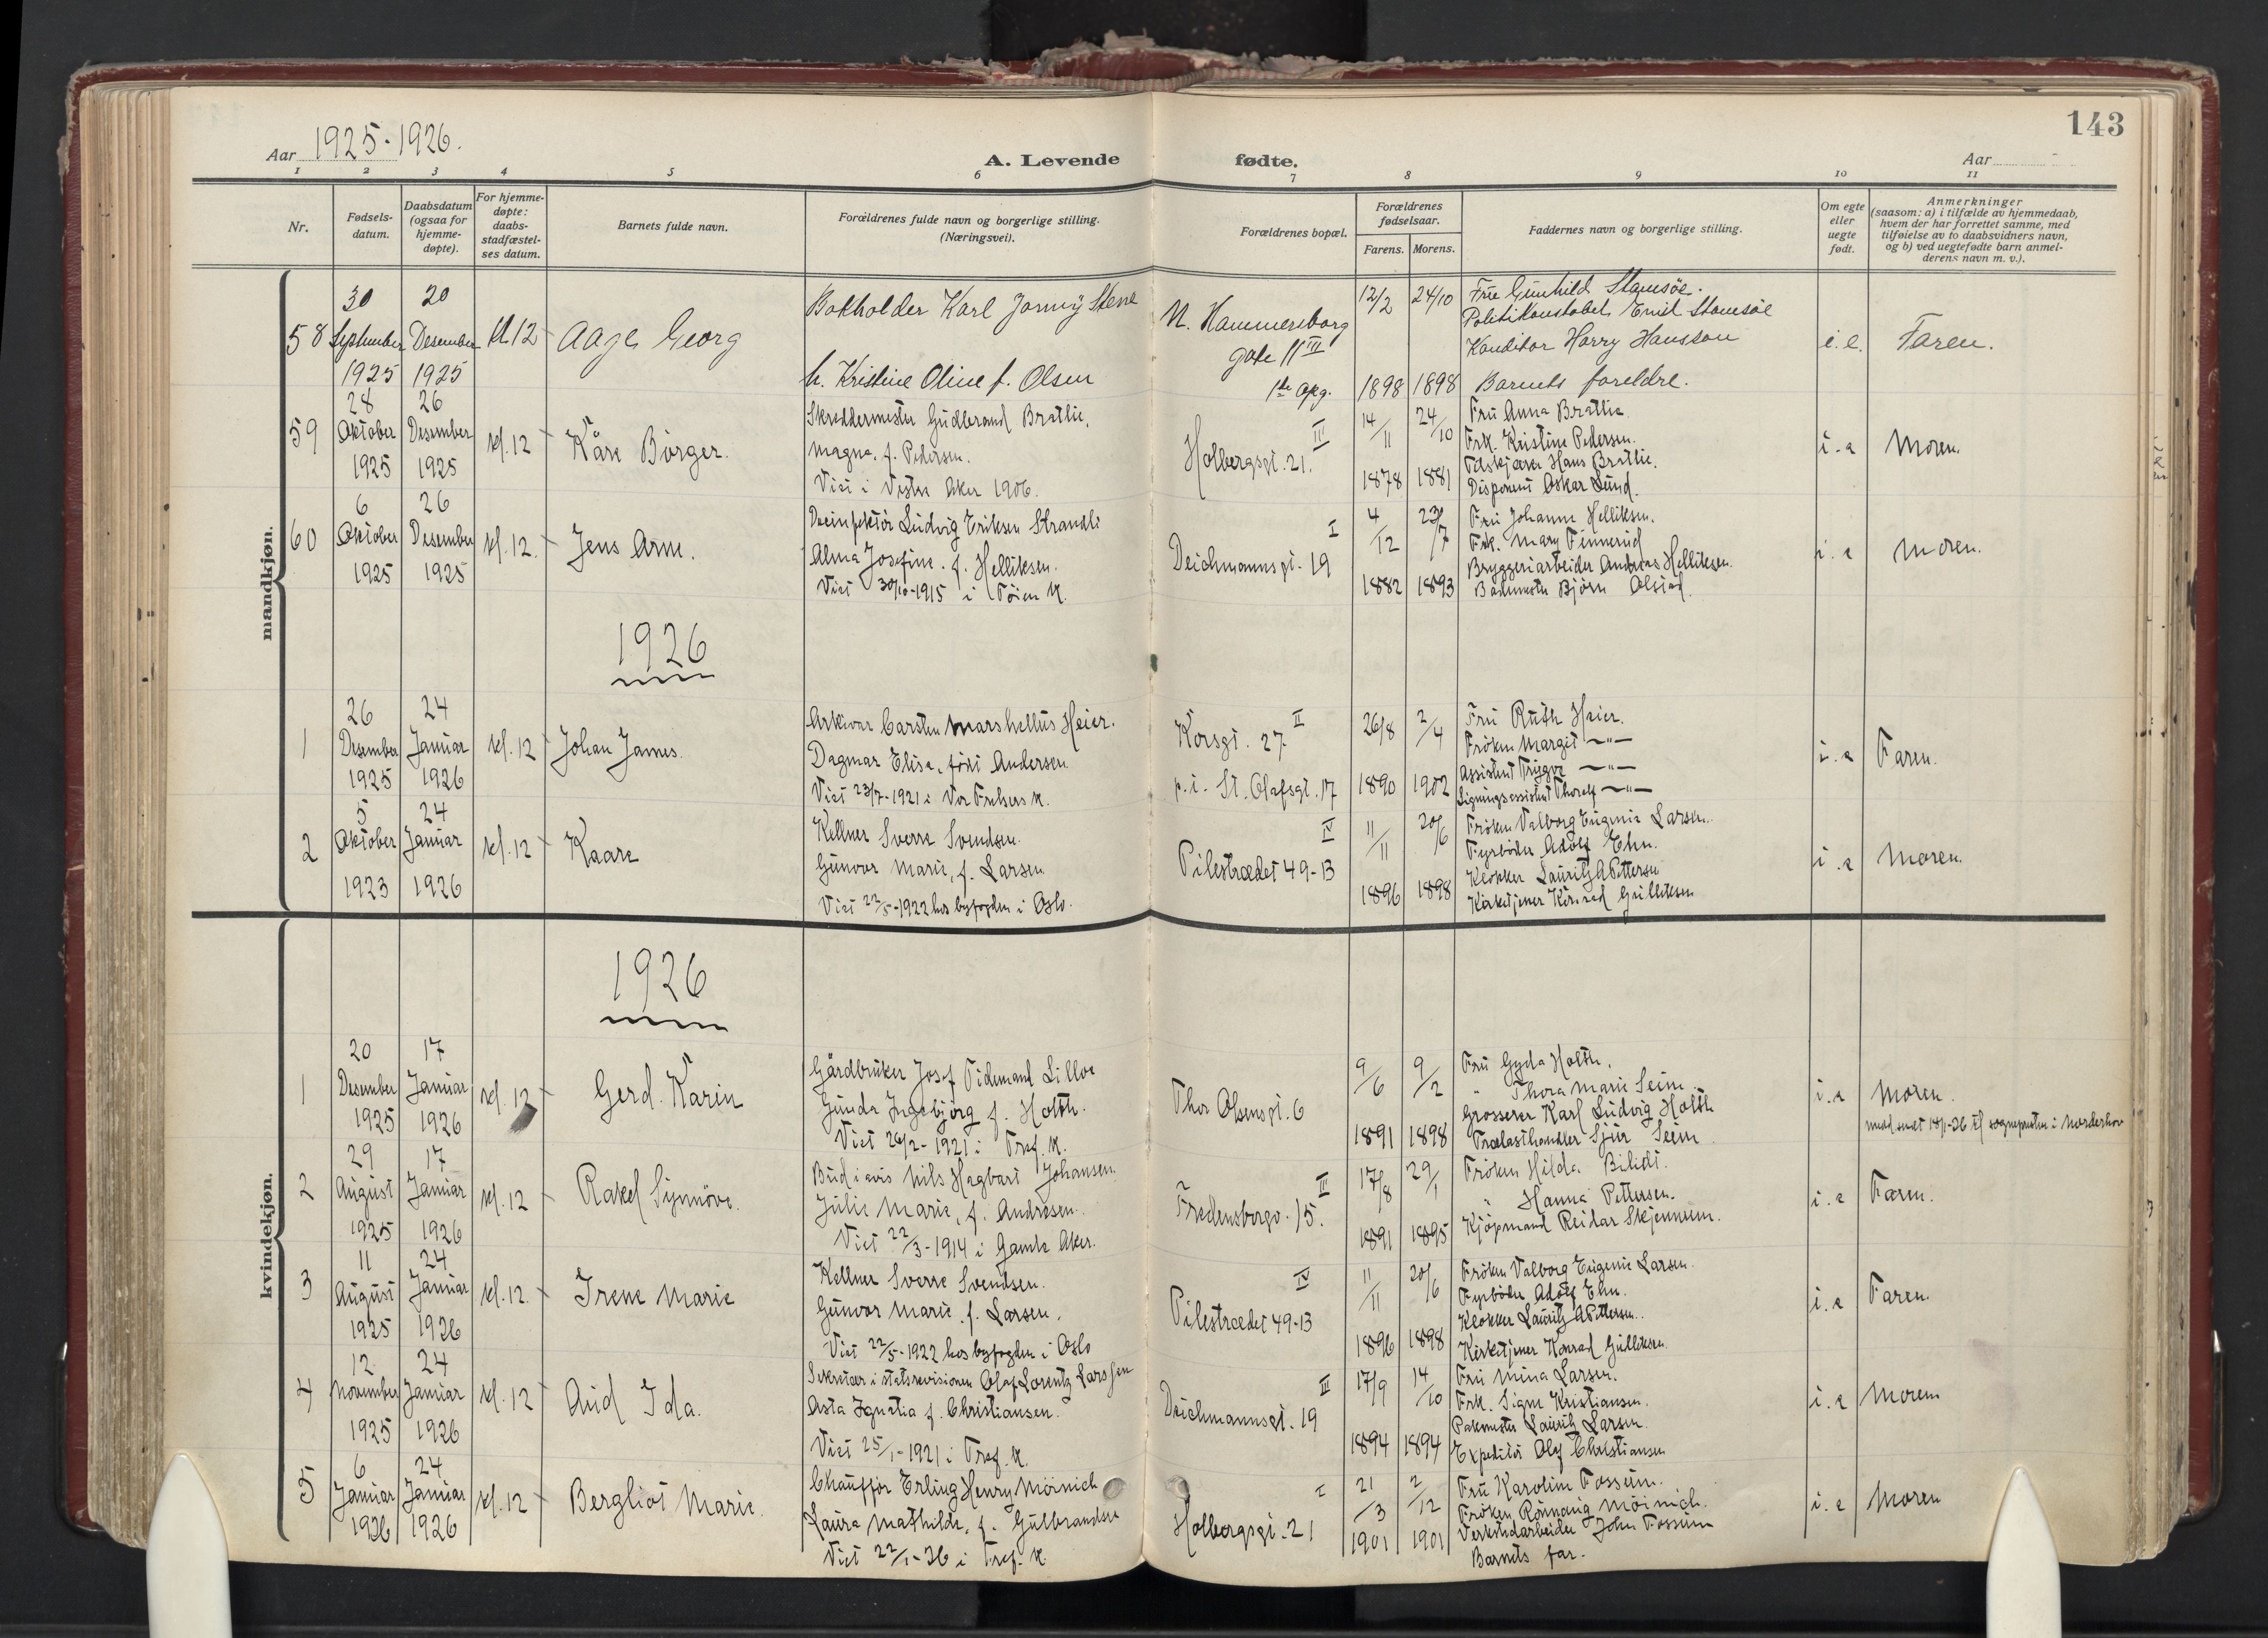 143
Aar 1925-1926.
A. Levende fødte.
Aar
1 2 3 4 5 6 7 8 9 10 11
Nr.
Fødsels-
datum.
Daabsdatum
(ogsaa for
hjemme-
døpte).
For hjemme-
døpte:
daabs-
stadfæstel-
ses datum.
Barnets fulde navn.
Forældrenes fulde navn og borgerlige stilling.
(Næringsvei).
Forældrenes bopæl.
Forældrenes
fødselsaar.
Farens. Morens.
Faddernes navn og borgerlige stilling.
Om egte
eller
uegte
født.
Anmerkninger
(saasom: a) i tilfælde av hjemmedaab,
hvem der har forrettet samme, med
tilføielse av to daabsvidners navn,
og b) ved uegtefødte barn anmel-
derens navn m. v.).
mandkjøn.
58
30
September
1925
20
Desember
1925
kl 12
Aage Georg
Bokholder Karl Jonny Stene
h. Kristine Oline f. Olsen
N. Hammersborg
gate 11 III
1ste opg.
12/2 1898
24/10 1898
Frue Gunhild Stamsöe.
Politikonstabel Emil Stamsöe
Konditor Harry Hansson
Barnets foreldre.
i. e.
Faren.
59
28
Oktober
1925
26
Desember
1925
kl. 12
Kåre Börger.
Skreddermester Gudbrand Bratlie,
Magna, f. Pedersen.
Viet i Vestre Aker 1906.
III
Holbergsgt. 21.
14/11 1878
24/10 1881
Fru Anna Bratlie
Frk. Kristine Pedersen.
Hans Bratlie.
Disponent Oskar Lund.
i. e
Moren.
60
6
Oktober
1925
26
Desember
1925
kl. 12.
Jens Arne.
Desinfektör Ludvig Eriksen Strandli
Alma Josefine. f. Helliksen.
Viet 30/10-1915 i Töien K.
I
Deichmannsgt. 19
4/12 1882
23/7 1893
Fru Johanne Helliksen.
Frk. Mary Finnerud
Bryggeriarbeider Andreas Helliksen.
Björn Olstad.
i. e
Moren.
1926
1
26
Desember
1925
24
Januar
1926
kl. 12
Johan James.
Arkivar Carsten Marshellus Heier.
Dagmar Elise, födt Andersen
Viet 23/7-1921 i Vor Frelsers K.
II
Korsgt. 27.
p.t. St. Olafsgt. 17
26/8 1890
2/4 1902
Fru Ruth Heier.
Fröken Margit —"—
Assistent Trygve —"—
Ligningsassistent Thoralf —"—
i. e
Faren.
2
5
Oktober
1923
24
Januar
1926
kl. 12
Kaare
Kellner Sverre Svendsen.
Gunvor Marie, f. Larsen
Viet 22/5-1922 hos byfogden i Oslo.
IV
Pilestrædet 49-13
11/11 1896
20/6 1898
Fröken Valborg Eugenie Larsen.
Fyrböter Adolf Ehn.
Klokker Lauritz A Pettersen
Kirketjener Konrad Gulliksen
i. e
Moren.
kvindekjøn.
1926
1
20
Desember
1925
17
Januar
1926
kl. 12
Gerd. Karin
Gårdbruker Josef Tidemand Lilloe
Gunda Ingebjörg f. Holth.
Viet 26/2-1921 i Tref. K.
Thor Olsensgt. 6
9/6 1891
9/2 1898
Fru Gyda Holth.
" Thora Marie Seim
Grosserer Karl Ludvig Holth
Trælasthandler Sjur Seim
i. e
Moren.
meddelt 18/1-26 til sogneprsten i Norderhov
2
29
August
1925
17
Januar
1926
kl. 12
Rakel Synnöve.
Bud i avis Nils Hagbart Johansen.
Julie Marie, f. Andresen.
Viet 22/3-1914 i Gamle Aker.
II
Fredensborgv. 15.
17/8 1891
29/1 1895
Fröken Hilda Bilidt.
" Hanna Pettersen.
Kjöpmand Reidar Skjennum.
i. e
Faren.
3
11
August
1925
24
Januar
1926
kl. 12.
Irene Marie
Kellner Sverre Svendsen.
Gunvor Marie. f. Larsen.
Viet 22/5-1922 hos byfogden i Oslo
IV
Pilestrædet 49-13
11/11 1896
20/6 1898
Fröken Valborg Eugenie Larsen.
Fyrböter Adolf Ehn.
Klokker Lauritz A Pettersen.
Kirketjener Konrad Gulliksen.
i. e
Faren.
4
12
November
1925
24
Januar
1926
kl. 12
Aud Ida.
Sekretær i statsrevisionen Olaf Lorentz Larssen
Asta Ignatia f. Christiansen.
Viet 25/1-1921 i Tref. K.
III
Deichmannsgt. 19
17/9 1894
14/10 1894
Fru Mina Larsen.
Frk. Signe Kristiansen.
Pakmester Lauritz Larsen.
Expeditör Olaf Christiansen
i. e
Moren
5
6
Januar
1926
24
Januar
1926
kl. 12
Bergliot Marie.
Chaufför Erling Henry Möinich
Laura Mathilde, f. Gulbrandsen
Viet 22/1-26 i Tref. K
I
Holbergsgt. 21
21/3 1901
2/12 1901
Fru Karoline Fossum.
Fröken Rönnaug Möinich.
Verkstedarbeider John Fossum
Barnets far.
i. e
Moren